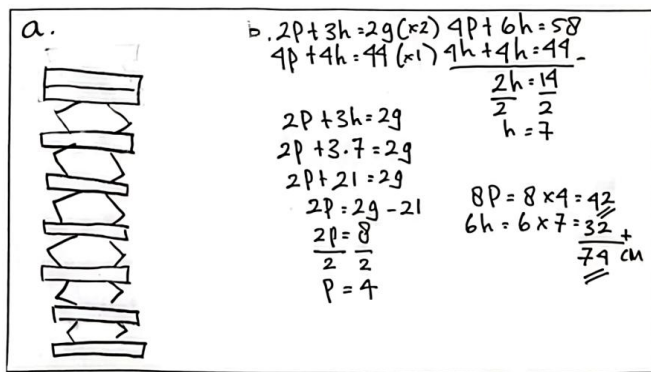 a.
b. 2p + 3h = 29 (x2) 4p + 6h = 58
4p + 4h = 44 (x1) 4h + 4h = 44 -
2h = 14
2 2
h = 7
2p + 3h = 29
2p + 3.7 = 29
2p + 21 = 29
2p = 29 - 21
2p = 8
2 2
p = 4
8p = 8 x 4 = 42
6h = 6 x 7 = 32 +
74 cm